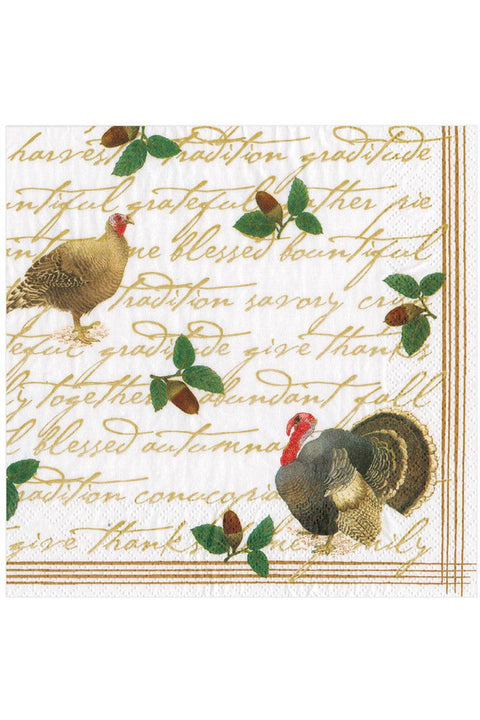 harvest tradition gratitude
grateful gather pie
blessed bountiful
tradition savory
gratitude give thanks
together abundant fall
blessed autumn
tradition
give thanks family